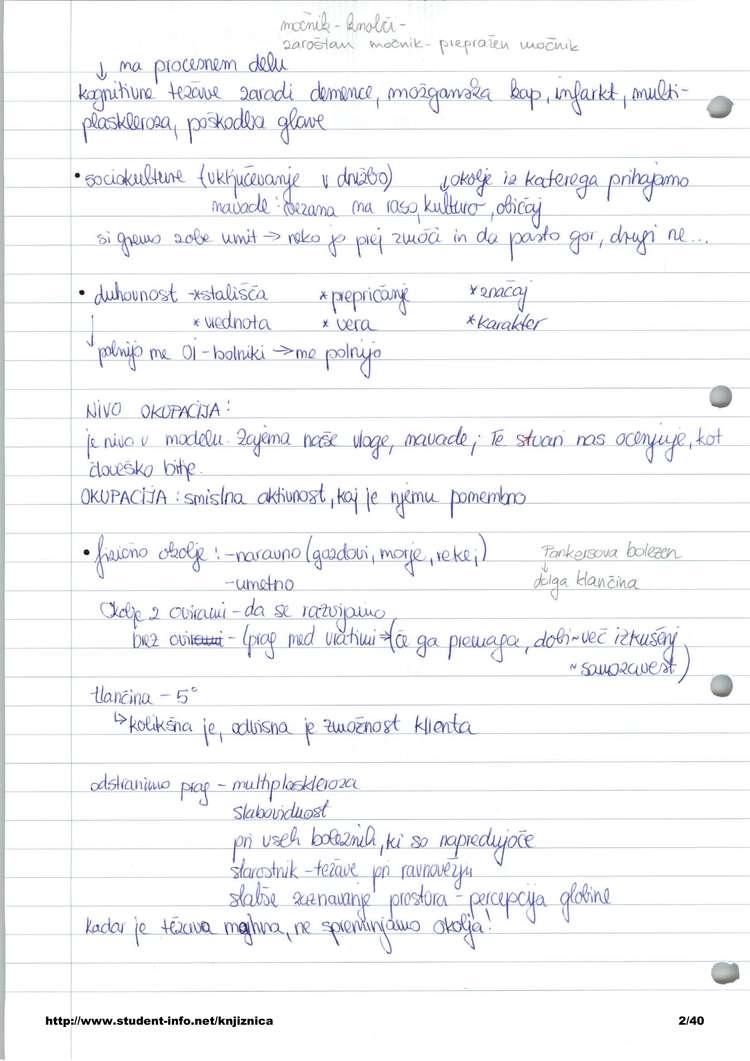 močnik - knolči -
zaroštan močnik - prepražen močnik
↓ na procesnem delu
kognitivne težave zaradi demence, možganska kap, infarkt, multi-
plaskleroza, poškodba glave
• sociokulturne (vključevanje v družbo) ↓okolje iz katerega prihajamo
navade: vezana na raso, kulturo, običaj
si gremo zobe umit → neko jo prej zmoči in da pasto gor, drugi ne...
• duhovnost -*stališča *prepričanje *značaj
*vrednota *vera *karakter
↓ polnijo me OI - bolniki → me polnijo
NIVO OKUPACIJA:
je nivo v modelu. Zajema naše vloge, navade; Te stvari nas ocenjuje, kot
človeško bitje.
OKUPACIJA: smislna aktivnost, kaj je njemu pomembno
• fizično okolje: -naravno (gozdovi, morje, reke,) Pankersova bolezen
-umetno ↓ dolga klančina
Okolje z ovirami - da se razvijamo
brez ovirami - (prag med vratimi → (če ga premaga, dobi ~ več izkušenj
~ samozavest)
klančina - 5°
↳ kolikšna je, odvisna je zmožnost klienta
odstranimo prag - multiplaskleroza
slabovidnost
pri vseh boleznih, ki so napredujoče
starostnik - težave pri ravnovežju
slabše zaznavanje prostora - percepcija globine
kadar je težava majhna, ne spreminjamo okolja!
http://www.student-info.net/knjiznica 2/40